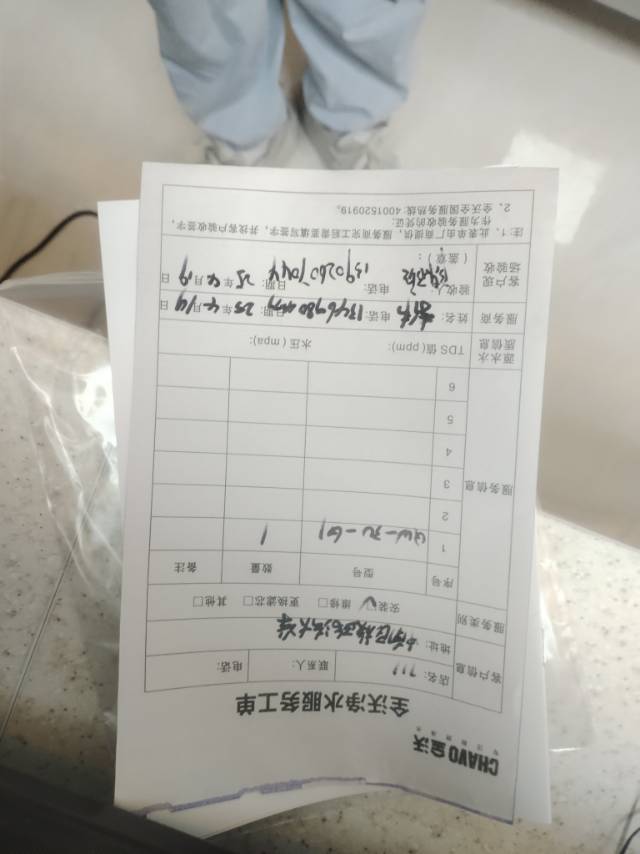 CHAVO 全沃
全沃净水服务工单
客户信息 店名: 777 联系人: 电话:
地址:
服务类别 安装☑ 维修□ 更换滤芯□ 其他□
服务信息 序号 型号 数量 备注
1 1
2
3
4
5
6
源水水质信息 TDS(值(ppm): 水压(mpa):
服务商 姓名: 电话: 日期: 25年4月19日
客户现场验收 验收人: 电话: 13902607044 日期: 25年4月19日
(盖章):
注:1、此表单由厂商提供,服务商完工后需填写签字,并找客户验收签字,
作为服务验收的凭证;
2、全沃全国服务热线:4001520919。